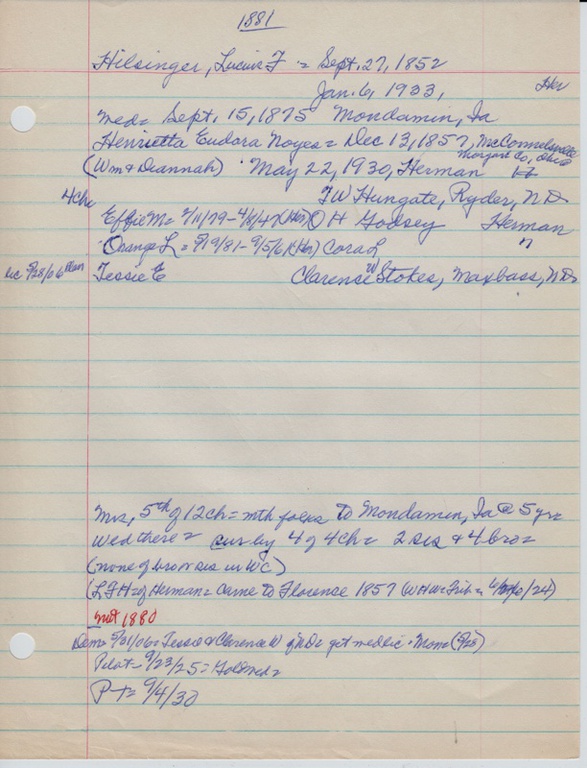 1881
Hilsinger, Lucius F = Sept. 27, 1852
Jan. 6, 1933, Her
med = Sept. 15, 1875 Mondamin, Ia
Henrietta Eudora Noyes = Dec 13, 1857, McConnelsville
Morgan Co, Ohio
(Wm & Diannah) May 22, 1930, Herman
T W Hungate, Ryder, ND
4 ch =
Effie M = 2/11/79 - 4/6/47 (Her) O H Godsey Herman
Orange L = 5/19/81 - 9/5/61 (Her) Cora L "
Lic 5/28/06 Tessie E Clarence W Stokes, Maxbass, ND
Mrs, 5th of 12 ch = mth folks to Mondamin, Ia @ 5 yr =
wed there = sur by 4 of 4 ch = 2 sis & 4 bro =
(none of bro or sis in WC)
(L F H = of Herman = came to Florence 1857 (W H W = Trib = /24)
not 1880
Dem = 5/31/06 = Tessie & Clarence W of ND = get med lic · Mon = (5/28)
Pilot = 9/23/25 = Gold wed =
P T = 9/4/30